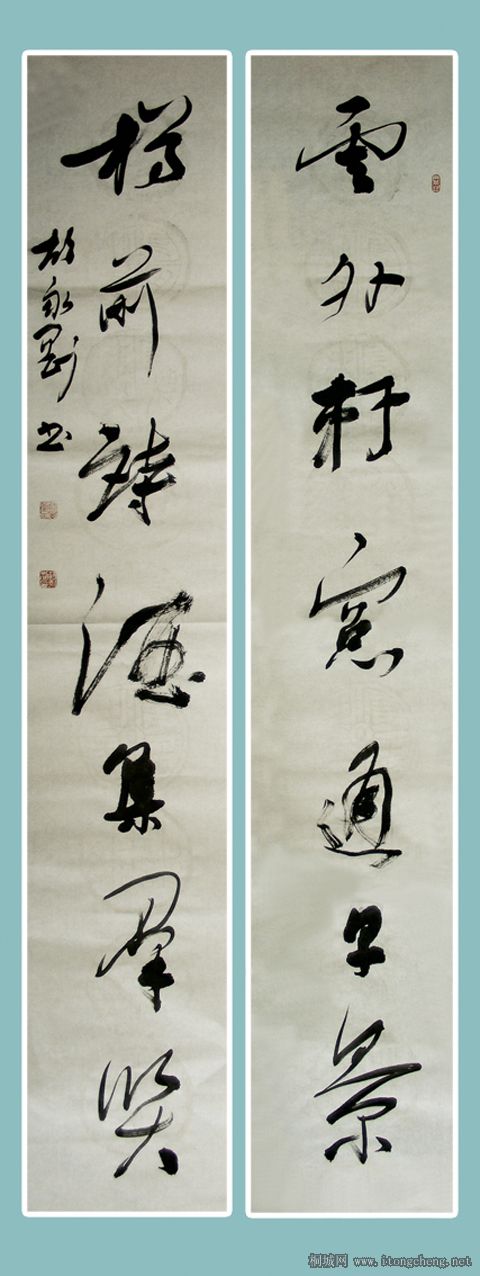 雲外軒窓通早景
樽前詩酒集羣賢
胡永剛书
桐城网 www.itongcheng.net